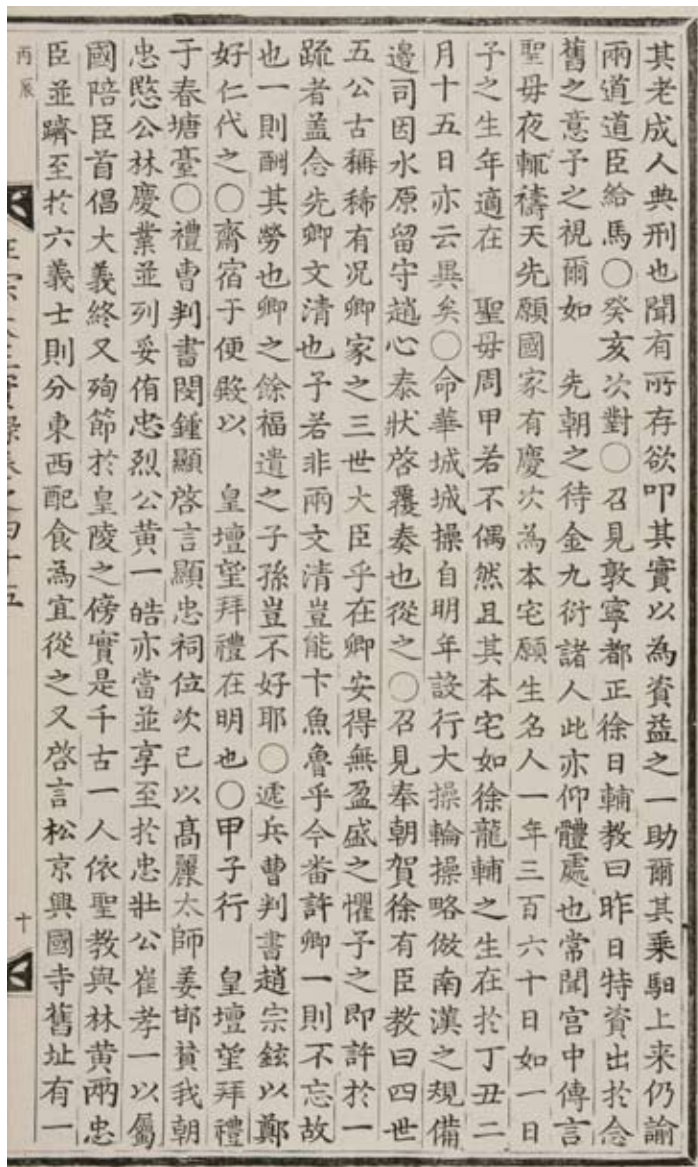 其老成人典刑也聞有所存欲叩其實以為資益之一助爾其乘馹上来仍諭
兩道道臣給馬○癸亥次對○召見敦寧都正徐日輔教曰昨日特資出於念
舊之意予之視爾如　先朝之待金九衍諸人此亦仰體處也常聞宮中傳言
聖毋夜輒禱天先願國家有慶次為本宅願生名人一年三百六十日如一日
子之生年適在　聖毋周甲若不偶然且其本宅如徐龍輔之生在於丁丑二
月十五日亦云異矣○命華城城操自明年設行大操輪操略倣南漢之規備
邊司因水原留守趙心泰狀啓覆奏也從之○召見奉朝賀徐有臣教曰四世
五公古稱稀有况卿家之三世大臣乎在卿安得無盈盛之懼予之即許於一
疏者盖念先卿文清也予若非兩文清豈能卞魚魯乎今番許卿一則不忘故
也一則酬其勞也卿之餘福遺之子孫豈不好耶○遞兵曹判書趙宗鉉以鄭
好仁代之○齋宿于便殿以　皇壇望拜禮在明也○甲子行　皇壇望拜禮
于春塘臺○禮曹判書閔鍾顯啓言顯忠祠位次已以高麗太師姜邯賛我朝
忠愍公林慶業並列妥侑忠烈公黄一皓亦當並享至於忠壯公崔孝一以屬
國陪臣首倡大義終又殉節於皇陵之傍實是千古一人依聖教與林黄兩忠
臣並躋至於六義士則分東西配食為宜從之又啓言松京興國寺舊址有一
丙辰
十